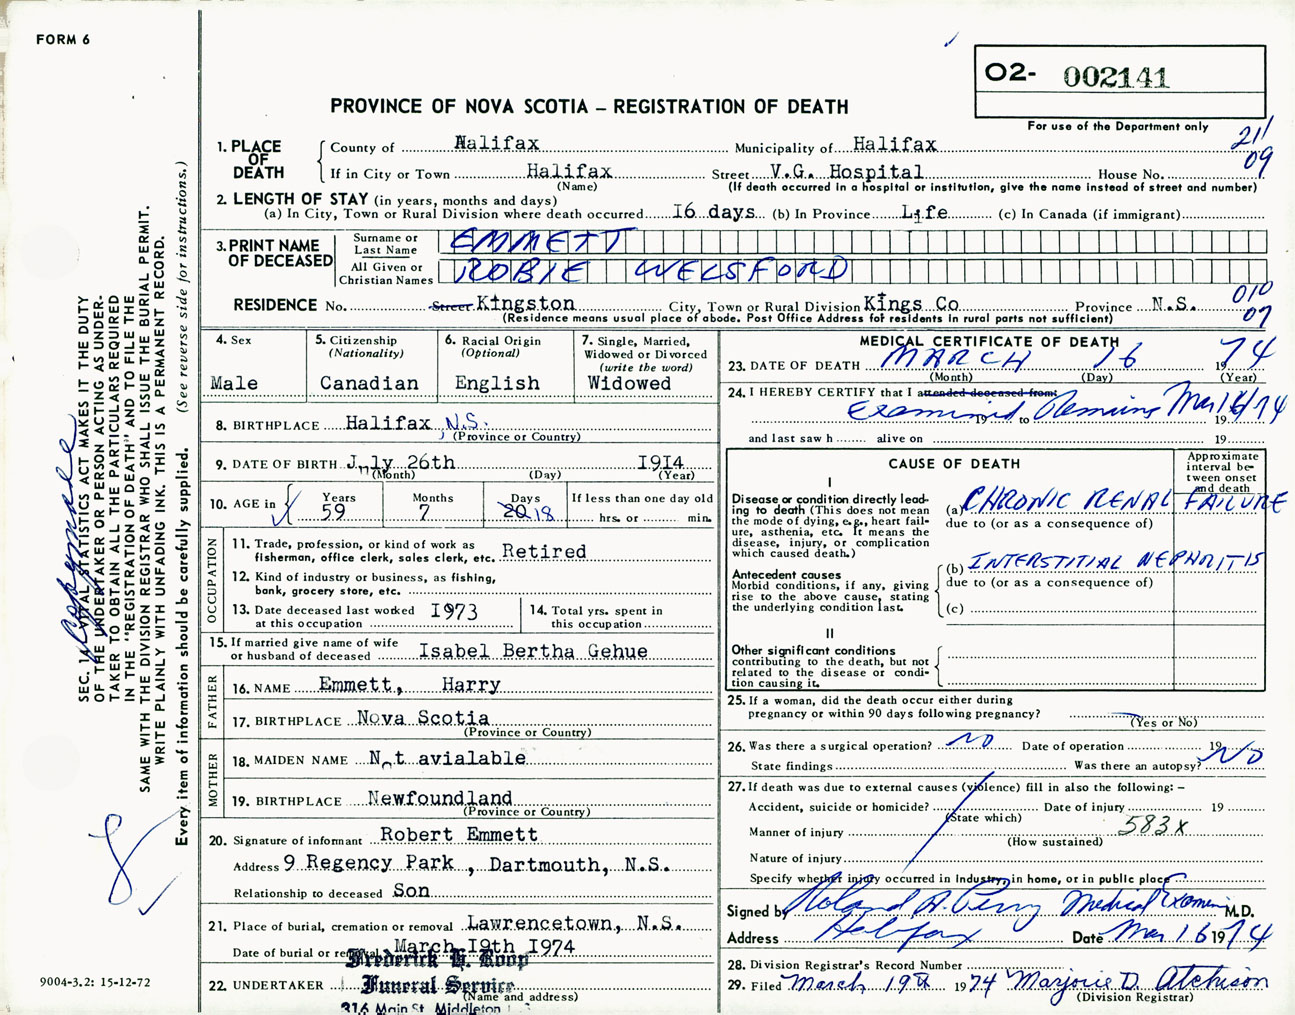 FORM 6
O2- 002141
PROVINCE OF NOVA SCOTIA – REGISTRATION OF DEATH
For use of the Department only
21/
09
1. PLACE OF DEATH
County of Halifax Municipality of Halifax
If in City or Town Halifax Street V.G. Hospital House No.
(Name) (If death occurred in a hospital or institution, give the name instead of street and number)
2. LENGTH OF STAY (in years, months and days)
(a) In City, Town or Rural Division where death occurred 16 days (b) In Province Life (c) In Canada (if immigrant)
3. PRINT NAME OF DECEASED
Surname or Last Name EMMETT
All Given or Christian Names ROBIE WELSFORD
010
07
RESIDENCE No. Street Kingston City, Town or Rural Division Kings Co Province N.S.
(Residence means usual place of abode. Post Office Address for residents in rural parts not sufficient)
4. Sex
Male
5. Citizenship
(Nationality)
Canadian
6. Racial Origin
(Optional)
English
7. Single, Married,
Widowed or Divorced
(write the word)
Widowed
8. BIRTHPLACE Halifax N.S.
(Province or Country)
9. DATE OF BIRTH July 26th 1914
(Month) (Day) (Year)
10. AGE in
Years Months Days If less than one day old
59 7 20 18 hrs. or min.
OCCUPATION
11. Trade, profession, or kind of work as
fisherman, office clerk, sales clerk, etc. Retired
12. Kind of industry or business, as fishing,
bank, grocery store, etc.
13. Date deceased last worked
at this occupation 1973
14. Total yrs. spent in
this occupation
15. If married give name of wife
or husband of deceased Isabel Bertha Gehue
FATHER
16. NAME Emmett, Harry
17. BIRTHPLACE Nova Scotia
(Province or Country)
MOTHER
18. MAIDEN NAME Not avialable
19. BIRTHPLACE Newfoundland
(Province or Country)
20. Signature of informant Robert Emmett
Address 9 Regency Park , Dartmouth, N.S.
Relationship to deceased Son
21. Place of burial, cremation or removal Lawrencetown, N.S.
Date of burial or removal March 19th 1974
22. UNDERTAKER
Frederick H. Roop
Funeral Service
(Name and address)
316 Main St. Middleton
MEDICAL CERTIFICATE OF DEATH
23. DATE OF DEATH MARCH 16 1974
(Month) (Day) (Year)
24. I HEREBY CERTIFY that I attended deceased from:
Examined Remains Mar 16/74
19 to 19
and last saw h alive on 19
CAUSE OF DEATH
Approximate
interval be-
tween onset
and death
I
Disease or condition directly lead-
ing to death (This does not mean
the mode of dying, e.g., heart fail-
ure, asthenia, etc. It means the
disease, injury, or complication
which caused death.)
(a) CHRONIC RENAL FAILURE
due to (or as a consequence of)
Antecedent causes
Morbid conditions, if any, giving
rise to the above cause, stating
the underlying condition last.
(b) INTERSTITIAL NEPHRITIS
due to (or as a consequence of)
(c)
II
Other significant conditions
contributing to the death, but not
related to the disease or condi-
tion causing it.
25. If a woman, did the death occur either during
pregnancy or within 90 days following pregnancy?
(Yes or No)
26. Was there a surgical operation? NO Date of operation 19
State findings Was there an autopsy? NO
27. If death was due to external causes (violence) fill in also the following: –
Accident, suicide or homicide? Date of injury 19
(State which)
583X
Manner of injury
(How sustained)
Nature of injury
Specify whether injury occurred in Industry, in home, or in public place
Signed by Roland A. Perry Medical Examiner M.D.
Address Halifax Date Mar 16 1974
28. Division Registrar's Record Number
29. Filed March 19th 1974 Marjorie D. Atchison
(Division Registrar)
SEC. 1 VITAL STATISTICS ACT MAKES IT THE DUTY
OF THE UNDERTAKER OR PERSON ACTING AS UNDER-
TAKER TO OBTAIN ALL THE PARTICULARS REQUIRED
IN THE "REGISTRATION OF DEATH" AND TO FILE THE
SAME WITH THE DIVISION REGISTRAR WHO SHALL ISSUE THE BURIAL PERMIT.
WRITE PLAINLY WITH UNFADING INK. THIS IS A PERMANENT RECORD.
Every item of information should be carefully supplied. (See reverse side for instructions.)
9004-3.2: 15-12-72